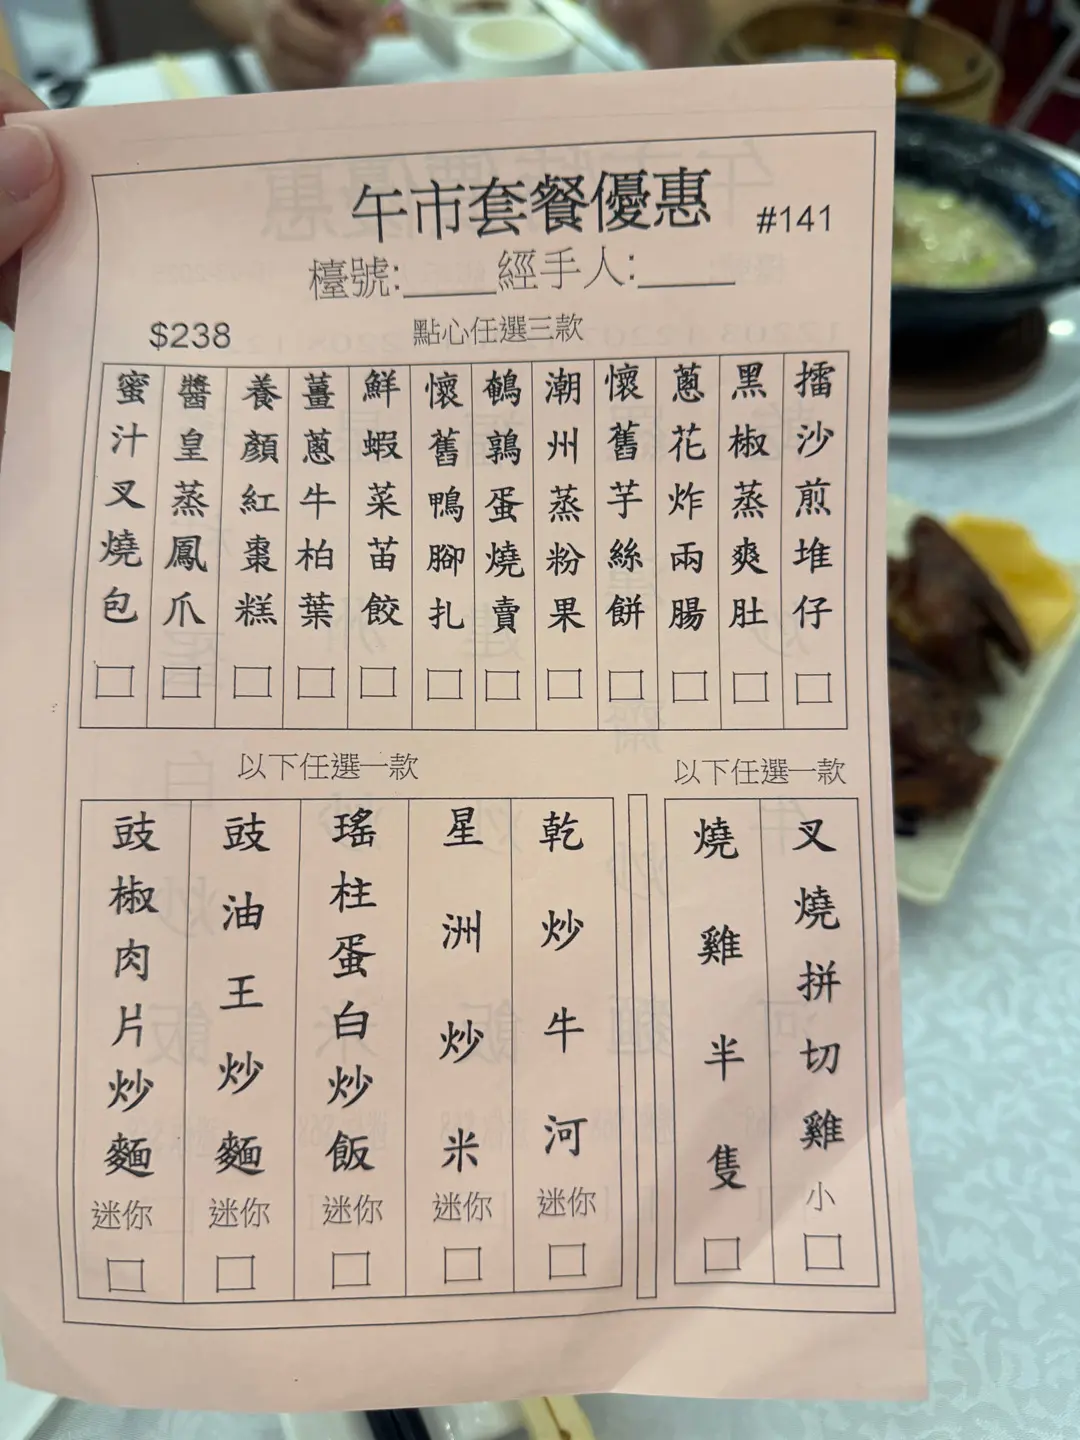 午市套餐優惠 #141
檯號:____經手人:____
$238 點心任選三款
擂沙煎堆仔
黑椒蒸爽肚
蔥花炸兩腸
懷舊芋絲餅
潮州蒸粉果
鵪鶉蛋燒賣
懷舊鴨腳扎
鮮蝦菜苗餃
薑蔥牛柏葉
養顏紅棗糕
醬皇蒸鳳爪
蜜汁叉燒包
以下任選一款
叉燒拼切雞 小
燒雞半隻
以下任選一款
乾炒牛河 迷你
星洲炒米 迷你
瑤柱蛋白炒飯 迷你
豉油王炒麵 迷你
豉椒肉片炒麵 迷你